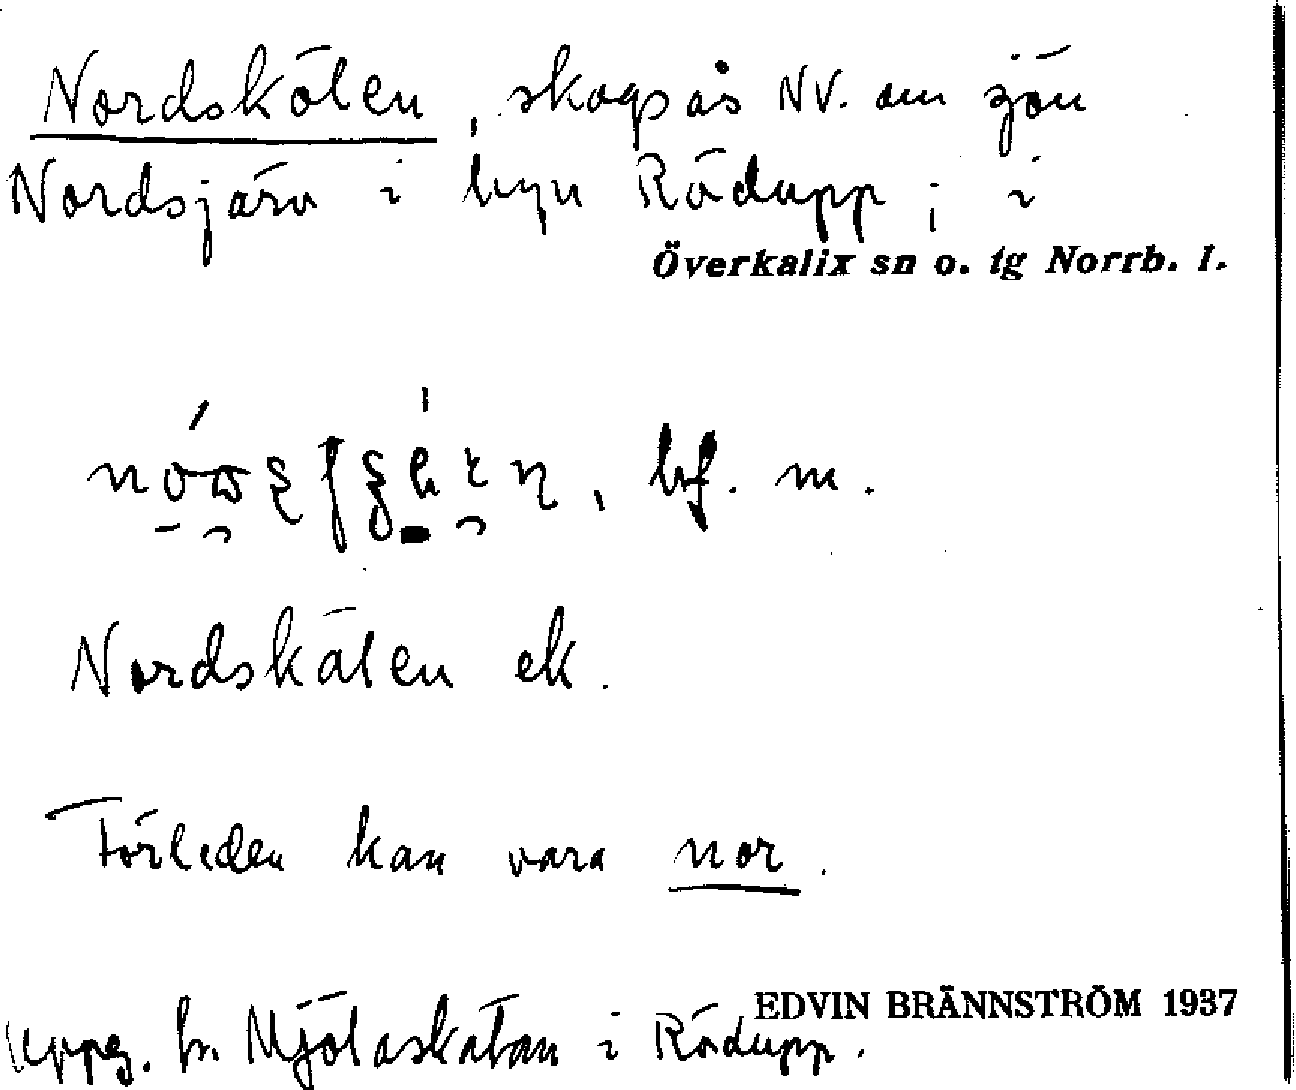 Nordskölen, skogsås NV. om sjön
Nordsjärv i byn Rödupp; i
Överkalix sn o. tg Norrb. l.
bf. m.
Nordskälen ek.
Förleden kan vara nor.
EDVIN BRÄNNSTRÖM 1937
Uppg. fr. Mjölaskatan i Rödupp.